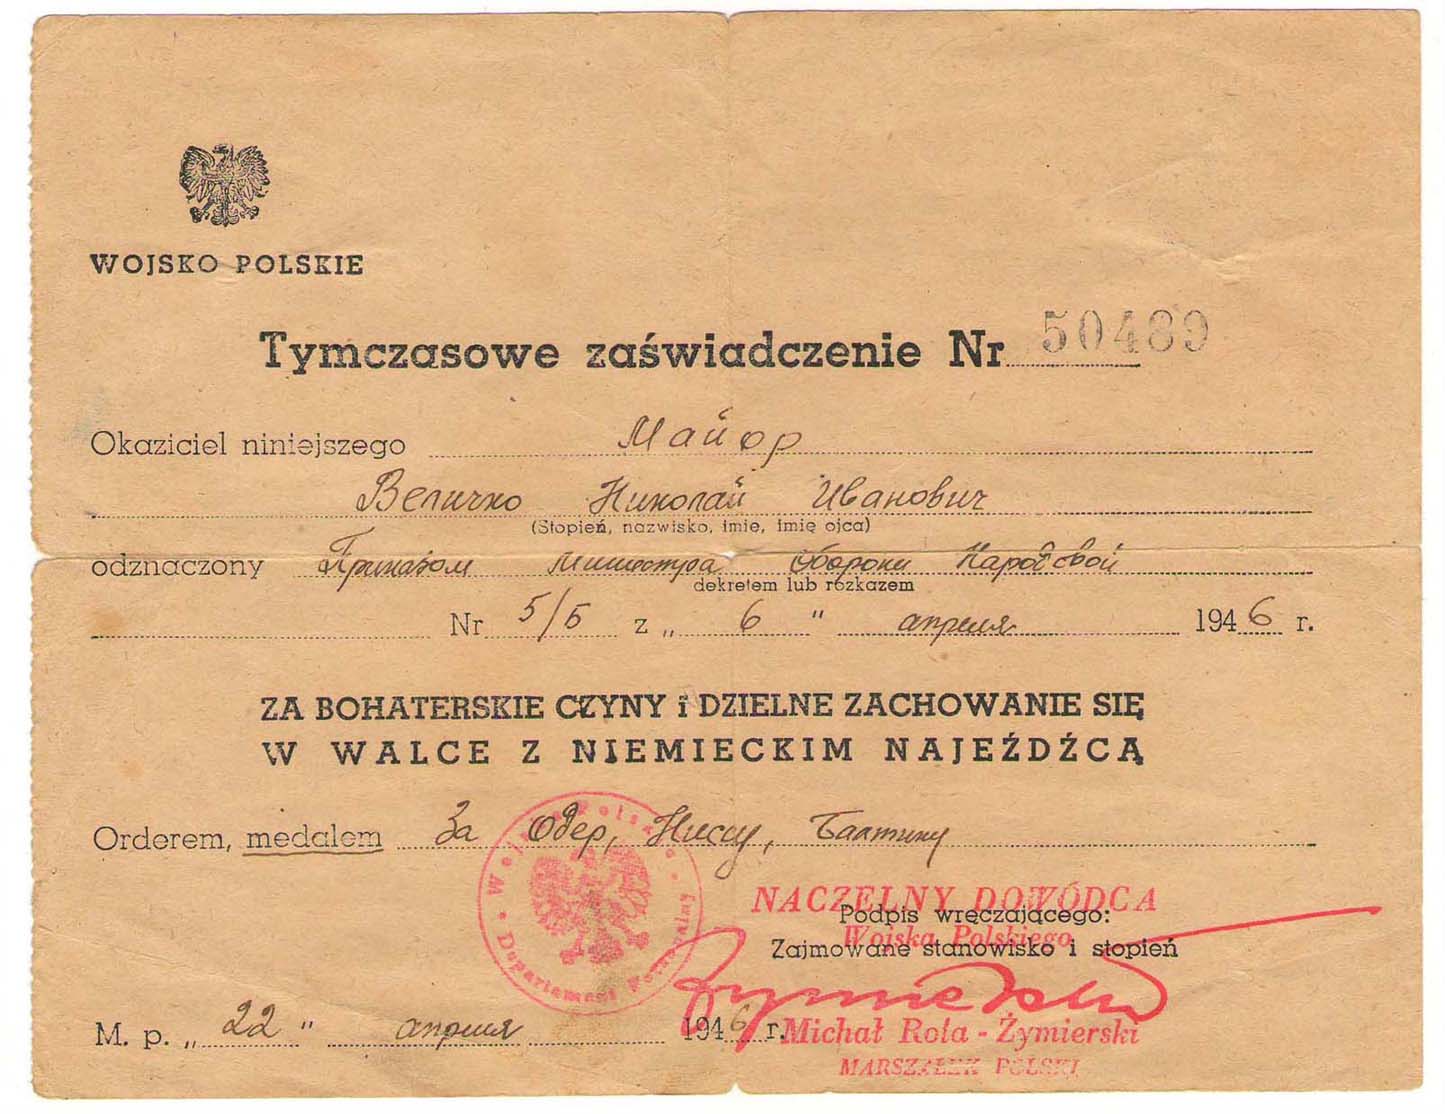 WOJSKO POLSKIE
Tymczasowe zaświadczenie Nr 50489
Okaziciel niniejszego Майор
Величко Николай Иванович
(Stopień, nazwisko, imie, imię ojca)
odznaczony Приказом Министра Обороны Народовой
dekretem lub rózkazem
Nr 5/Б z „ 6 " апреля 1946 r.
ZA BOHATERSKIE CZYNY i DZIELNE ZACHOWANIE SIĘ
W WALCE Z NIEMIECKIM NAJEŹDŹCĄ
Orderem, medalem За Одер, Ниссу, Балтику
Wojsko Polskie • Departament Personalny •
NACZELNY DOWÓDCA
Podpis wręczającego:
Wojska Polskiego
Zajmowane stanowisko i stopień
M. p. „ 22 " апреля 1946 r.
Michał Rola - Żymierski
MARSZAŁEK POLSKI